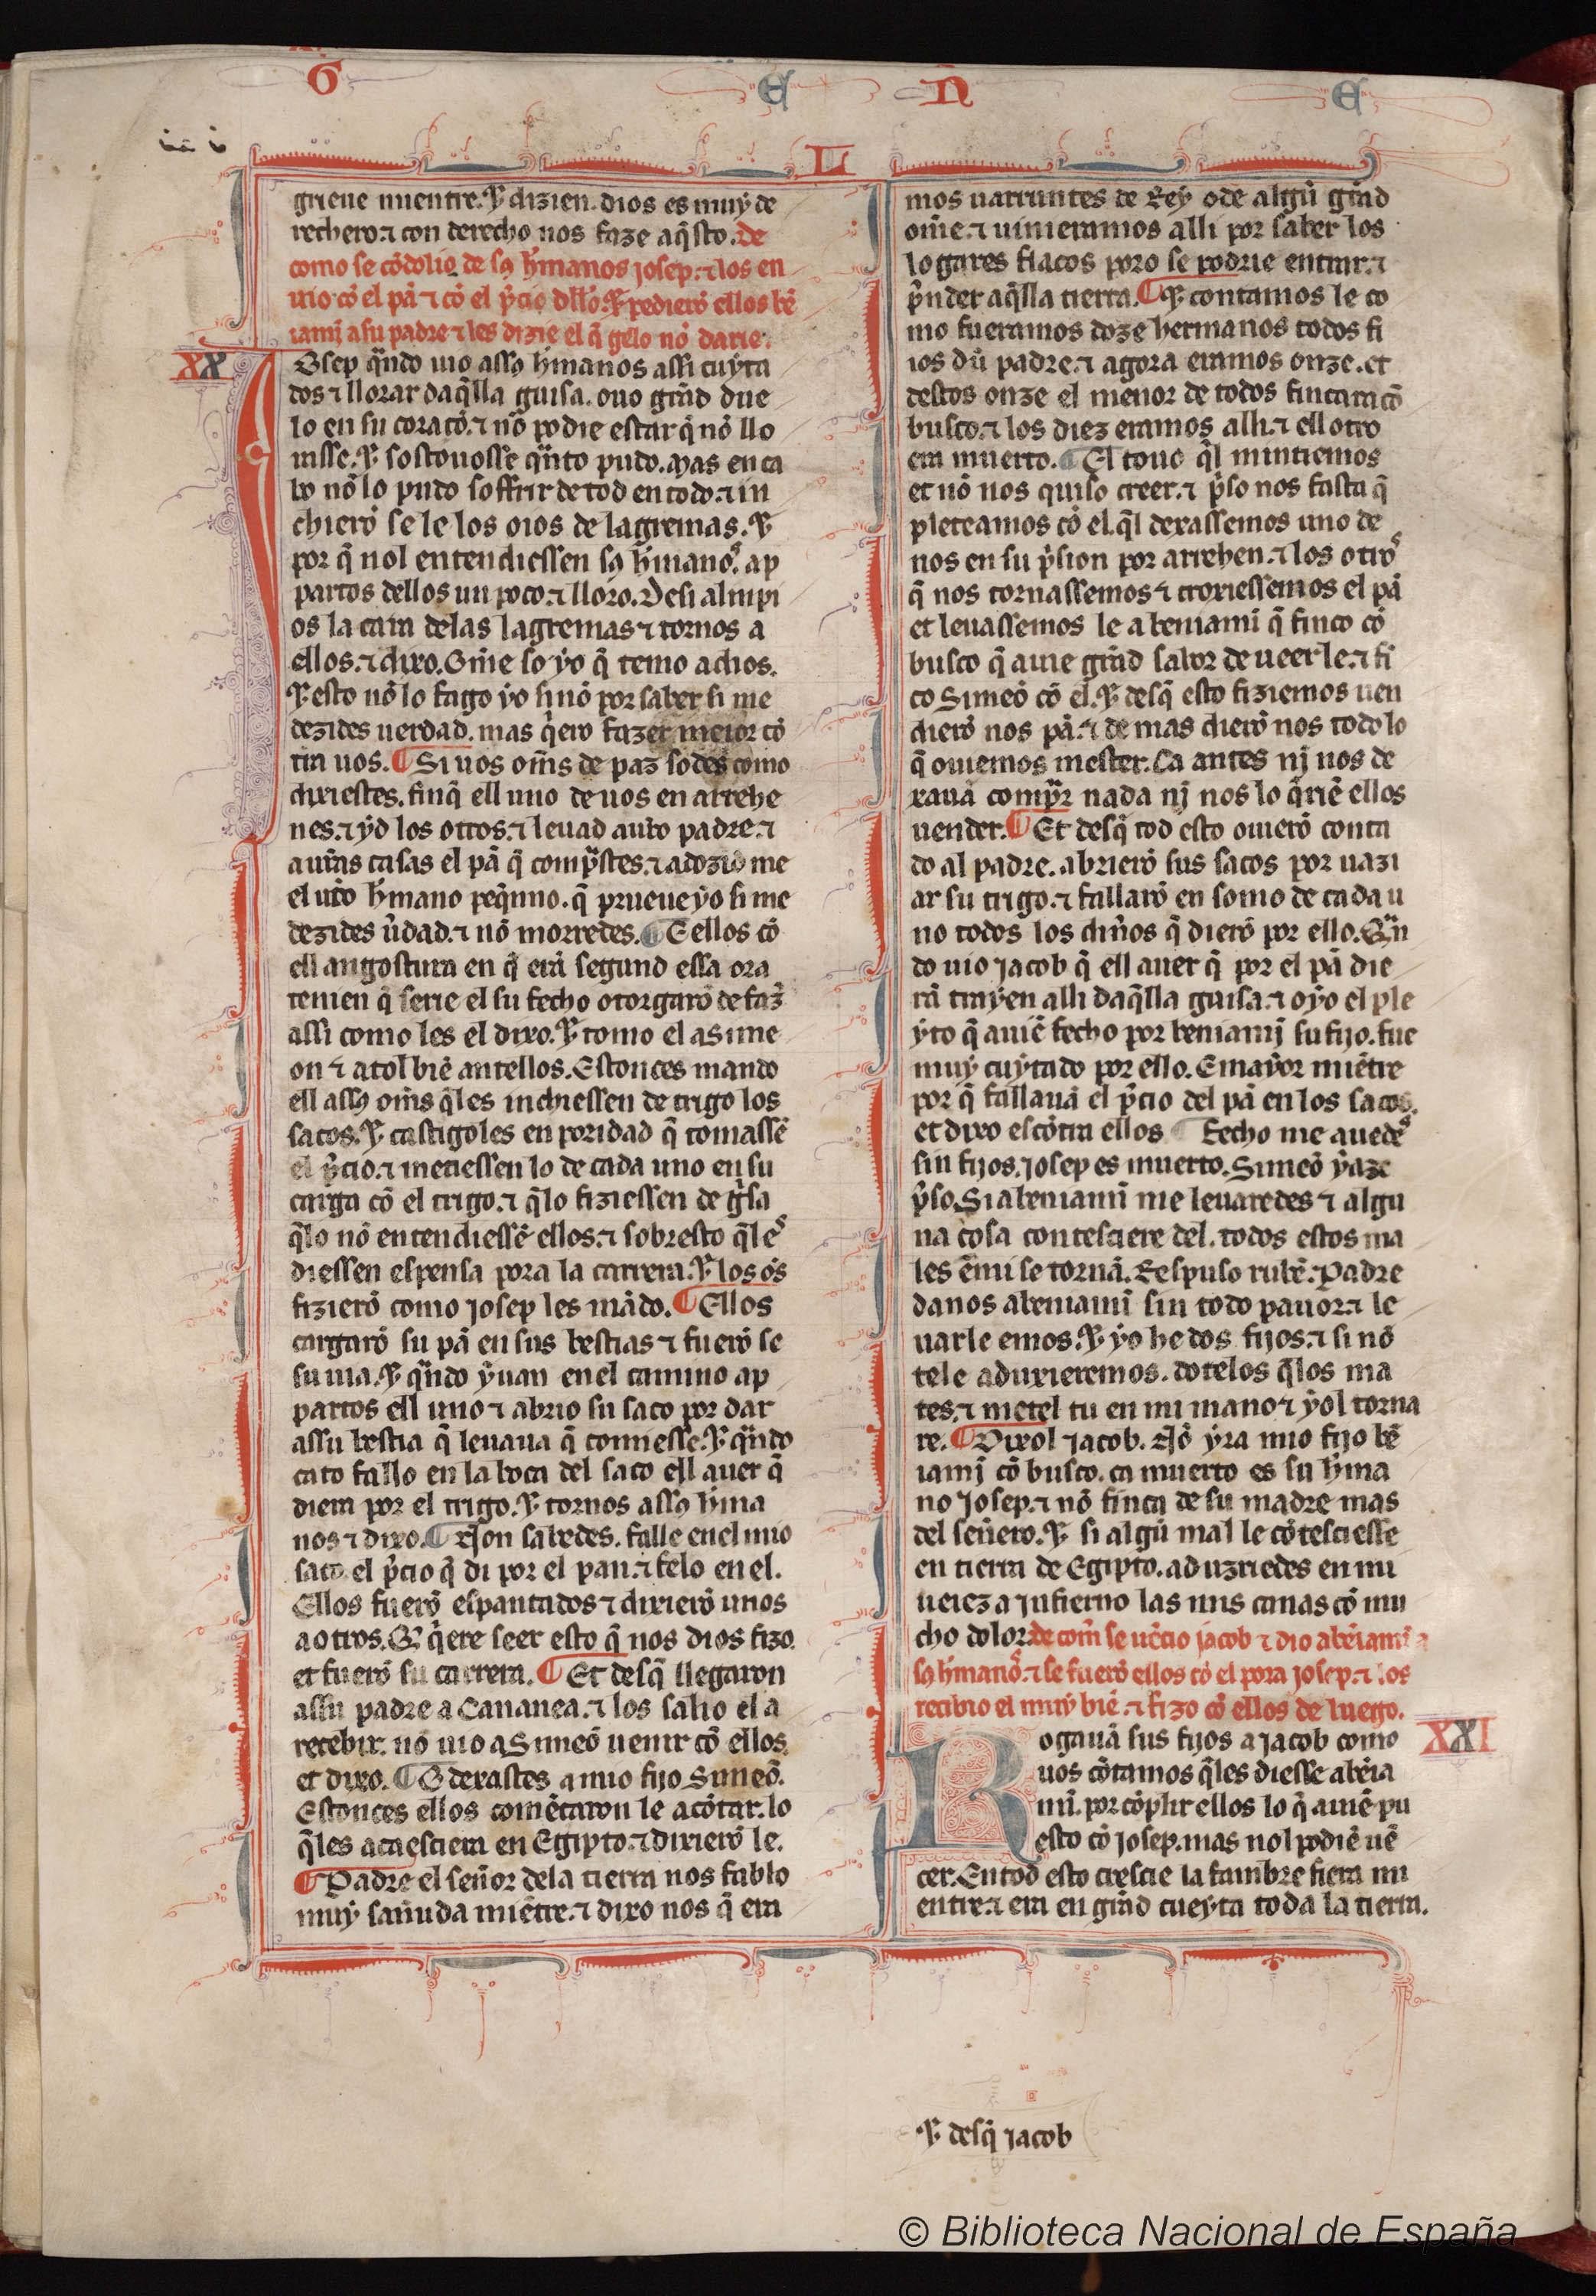 G E N E
L
grieue mientre. ⁊ dizien. dios es muy de
rechero. ⁊ con derecho nos faze aq̃sto. de
como se cõdolio de sꝯ h̃manos josep. ⁊ los en
uio cõ el pã ⁊ cõ el p̃cio dllo. ⁊ pedierõ ellos bẽ
iamj̃ a su padre ⁊ les dizie el q̃ gelo nõ darie.
XX
Iosep q̃ndo uio assꝯ h̃manos assi cuyta
dos ⁊ llorar daq̃lla guisa. ouo grãd due
lo en su coraçõ. ⁊ nõ podie estar q̃ nõ llo
rasse. ⁊ sostouosse q̃nto pudo. mas en ca
bo nõ lo pudo soffrir de tod en todo. ⁊ in
chierõ se le los oios de lagremas. ⁊
por q̃ nol entendiessen sꝯ h̃manos. ap
partos dellos un poco. ⁊ lloro. Desi alinpi
os la cara delas lagremas ⁊ tornos a
ellos. ⁊ dixo. Om̃e so yo q̃ temo a dios.
⁊ esto nõ lo fago yo si nõ por saber si me
dezides uerdad. mas q̃ero fazer meior cõ
tra uos. ¶ Si uos om̃s de paz sodes como
dixiestes. finq̃ ell uno de uos en arrehe
nes. ⁊ yd los otros. ⁊ leuad auro padre. ⁊
a ur̃as casas el pã q̃ comp̃stes. ⁊ adozid me
el ur̃o h̃mano peq̃nno. q̃ prueue yo si me
dezides ũdad. ⁊ nõ morredes. ¶ E ellos cõ
ell angostura en q̃ erã segund essa ora
tenien q̃ serie el su fecho otorgarõ de faz̃
assi como les el dixo. ⁊ tomo el a sime
on ⁊ atol biẽ antellos. Estonces mando
ell assꝯ om̃s q̃les inchiessen de trigo los
sacos. ⁊ castigoles en poridad q̃ tomassẽ
el p̃cio. ⁊ metiessen lo de cada uno en su
carga cõ el trigo. ⁊ q̃lo fiziessen de g̃sa
q̃lo nõ entendiessẽ ellos. ⁊ sobresto q̃les
diessen espensa pora la carrera. ⁊ los os̃
fizierõ como josep les mãdo. ¶ Ellos
cargarõ su pã en sus bestias ⁊ fuerõ se
su uia. ⁊ q̃ndo yuan en el camino ap
partos ell uno ⁊ abrio su saco por dar
assu bestia q̃ leuaua q̃ comiesse. ⁊ q̃ndo
cato fallo en la boca del saco ell auer q̃
diera por el trigo. ⁊ tornos assꝯ h̃ma
nos ⁊ dixo. ¶ Non sabedes. falle en el mio
saco el p̃cio q̃ di por el pan. ⁊ felo en el.
Ellos fuerõ espantados ⁊ dixierõ unos
a otros. Q̃ q̃ere seer esto q̃ nos dios fizo.
et fuerõ su carrera. ¶ Et desq̃ llegaron
assu padre a Cananea. ⁊ los salio el a
recebir. nõ uio a Simeõ uenir cõ ellos.
et dixo. ¶ O dexastes a mio fijo Simeõ.
Estonces ellos comẽçaron le a cõtar. lo
q̃les acaesciera en Egipto. ⁊ dixierõ le.
¶ Padre el señor dela tierra nos fablo
muy sañuda miẽtre. ⁊ dixo nos q̃ era
mos uarruntes de Rey o de algũ grãd
om̃e. ⁊ uinieramos alli por saber los
logares flacos poro se podrie entrar. ⁊
p̃nder aq̃lla tierra. ¶ ⁊ contamos le co
mo fueramos doze hermanos todos fi
ios dũ padre. ⁊ agora eramos onze. et
destos onze el menor de todos fincara cõ
tusco. ⁊ los diez eramos alli. ⁊ ell otro
era muerto. ¶ El touo q̃l mintiemos
et nõ nos quiso creer. ⁊ p̃so nos fasta q̃
pleteamos cõ el. q̃l dexassemos uno de
nos en su p̃sion por arrehen. ⁊ los otros
q̃ nos tornassemos ⁊ troxiessemos el pã
et leuassemos le a beniamĩ q̃ finco cõ
tusco q̃ auie grãd sabor de ueerle. ⁊ fi
co Simeõ cõ el. ⁊ desq̃ esto fiziemos uen
dierõ nos pã. ⁊ de mas dierõ nos todo lo
q̃ ouiemos mester. Ca antes nj̃ nos de
xauã comp̃r nada nj̃ nos lo q̃riẽ ellos
uender. ¶ Et desq̃ tod esto ouierõ conta
do al padre. abrierõ sus sacos por uazi
ar su trigo. ⁊ fallarõ en somo de cada u
no todos los din̄os q̃ dierõ por ello. Q̃n
do uio jacob q̃ ell auer q̃ por el pã die
rã trayen alli daq̃lla guisa. ⁊ oyo el ple
yto q̃ auiẽ fecho por beniamj̃ su fijo. fue
muy cuytado por ello. E mayor miẽtre
por q̃ fallauã el p̃cio del pã en los sacos.
et dixo escõtra ellos ¶ Fecho me auedes
sin fijos. josep es muerto. Simeõ yaze
p̃so. Si a beniamĩ me leuaredes ⁊ algu
na cosa contesciere del. todos estos ma
les ẽ mi se tornã. Respuso rubẽ. Padre
danos a beniamĩ sin todo pauor. ⁊ le
uarle emos. ⁊ yo he dos fijos. ⁊ si nõ
tele aduxieremos. dotelos q̃los ma
tes. ⁊ metel tu en mi mano ⁊ yol torna
re. ¶ Dixol jacob. Nõ yra mio fijo bẽ
iamj̃ cõ busco. ca muerto es su h̃ma
no josep. ⁊ nõ finca de su madre mas
del señero. ⁊ si algũ mal le cõtesciesse
en tierra de Egipto. aduzriedes en mi
ueiez a jnfierno las mis canas cõ mu
cho dolor. de com̃ se uẽcio jacob ⁊ dio a bẽiamĩ a
sꝯ h̃manos. ⁊ se fuerõ ellos cõ el pora josep. ⁊ los
recibio el muy biẽ. ⁊ fizo cõ ellos de luego.
XXI
Rogauã sus fijos a jacob como
uos cõtamos q̃les diesse a bẽia
mĩ. por cõplir ellos lo q̃ auiẽ pu
esto cõ josep. mas nol podiẽ uẽ
cer. En tod esto crescie la fambre fiera mi
entre. ⁊ era en grãd cueyta toda la tierra.
⁊ desq̃ jacob
© Biblioteca Nacional de España